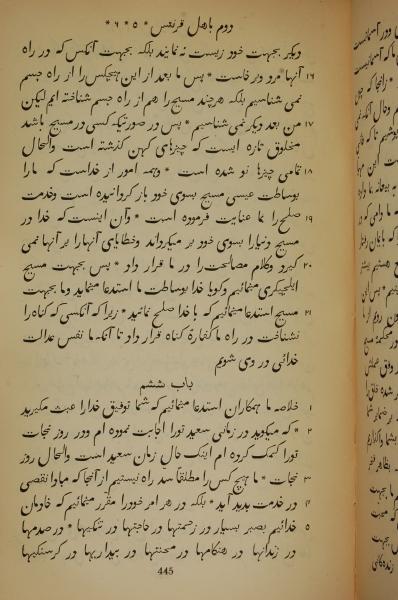 دوم باهل قرنتس * ٥ * ٦ *
دیکر بجهت خود زیست نه نمایند بلکه بجهت آنکس که در راه
١٦ آنها مرد و برخاست * پس ما بعد از این هیچکس را از راه جسم
نمی شناسیم بلکه هرچند مسیح را هم از راه جسم شناخته ایم لیکن
١٧ من بعد دیکر نمی شناسیم * پس در صورتیکه کسی در مسیح باشد
مخلوق تازه ایست که چیزهای کهن گذشته است والحال
١٨ تمامی چیزها نو شده است * وهمه امور از خداست که مارا
بوساطت عیسی مسیح بسوی خود باز کردانیده است وخدمت
١٩ صلح را بما عنایت فرموده است * وآن اینست که خدا در
مسیح دنیارا بسوی خود بر میکرداند وخطاهای آنهارا بر آنها نمی
٢٠ کیرد وکلام مصالحت را در ما قرار داد * پس بجهت مسیح
ایلچیکری منمائیم وکویا خدا بوساطت ما استدعا منماید وما بجهت
٢١ مسیح استدعا منمائیم که با خدا صلح نمائید * زیرا که آنکسی که کناه را
نشناخت در راه ما کفارهٔ کناه قرار داد تا آنکه ما نفس عدالت
خدائی در وی شویم
باب ششم
١ خلاصه ما همکاران استدعا منمائیم که شما توفیق خدارا عبث مکیرید
٢ * که میکوید در زمانی سعید تورا اجابت نموده ام ودر روز نجات
تورا کمک کرده ام اینک حال زمان سعید است والحال روز
٣ نجات * ما هیچ کس را مطلقا سد راه نیستیم از آنجا که مبادا نقصی
۴ در خدمت پدید آید * بلکه در هر امر خودرا مقرر منمائیم که خادمان
٥ خدائیم بصبر بسیار در زحمتها در حاجتها در تنکیها * در صدمها
در زندانها در هنکامها در محنتها در بیداریها در کرسنکیها
445